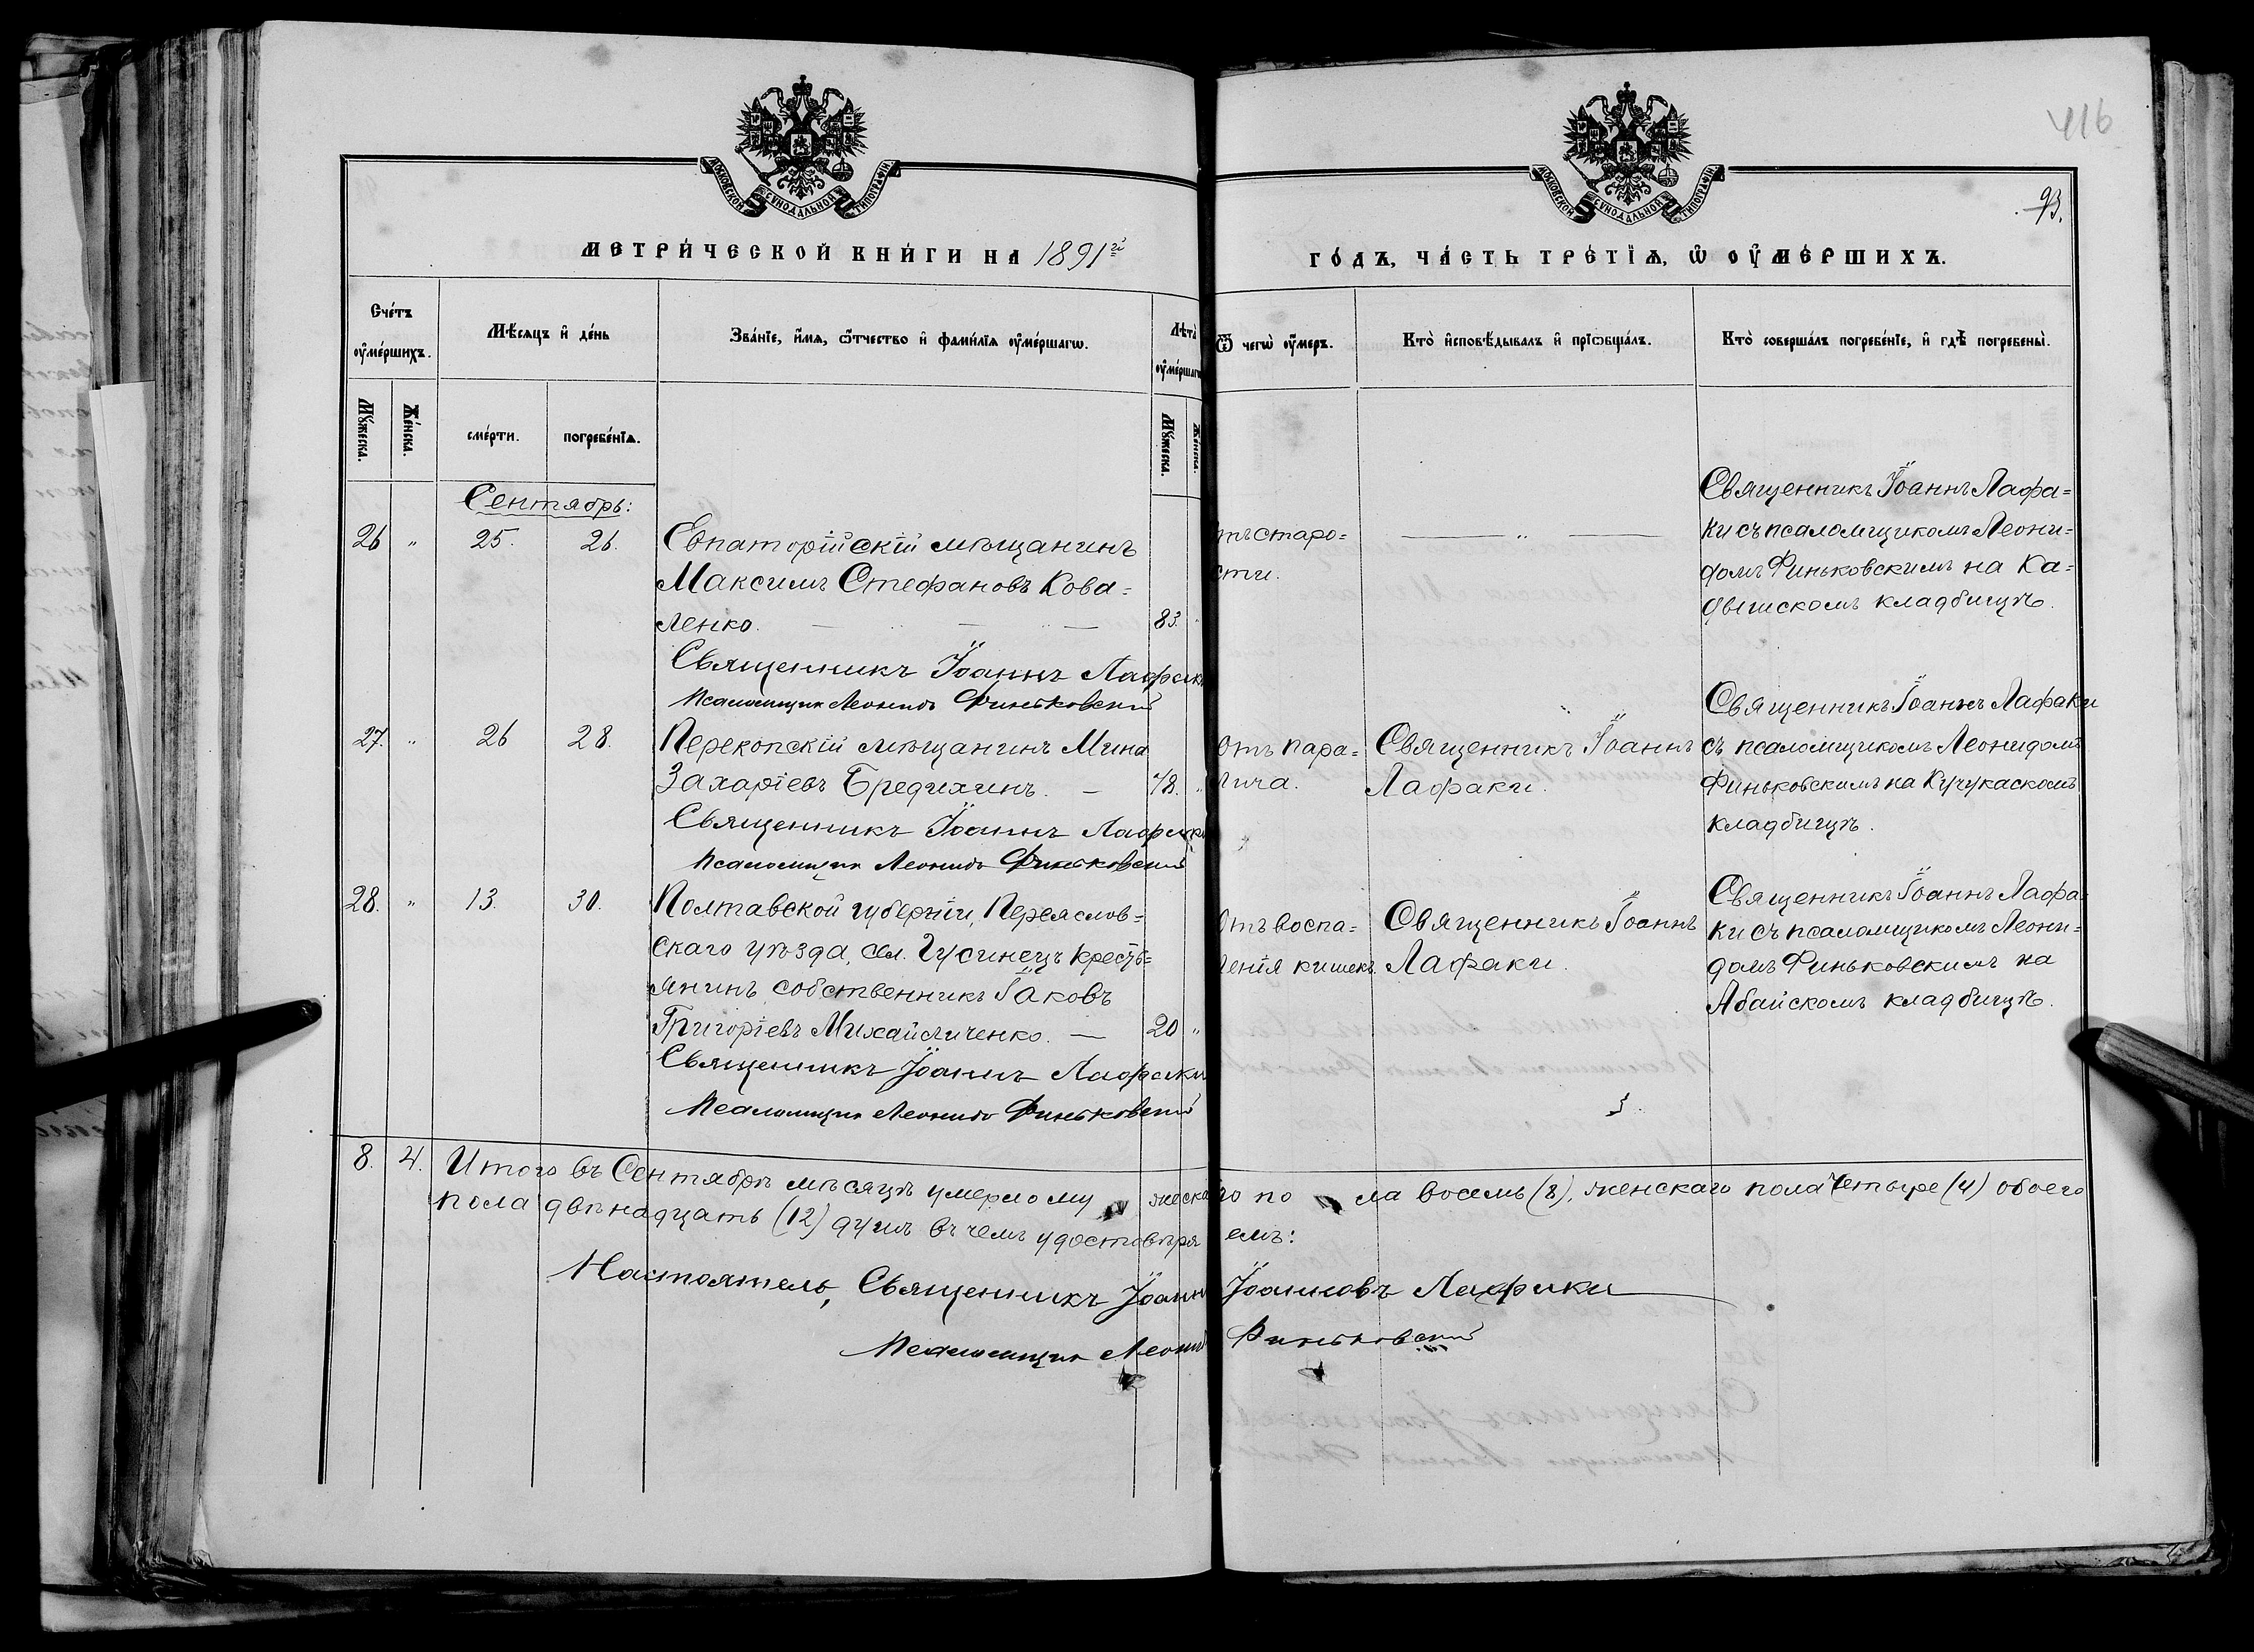 416
93.
МОСКОВСКОЙ СѴНОДАЛЬНОЙ ТИПОГРАФІИ
МОСКОВСКОЙ СѴНОДАЛЬНОЙ ТИПОГРАФІИ
МЕТРИ́ЧЕСКОЙ КНИ́ГИ НА 1891й
ГО́ДЪ, ЧА́СТЬ ТРЕ́ТІѦ, Ѡ҆ ОУ҆МЕ́РШИХЪ.
Сче́тъ оу҆ме́ршихъ.
Мѣ́сяцъ и҆ де́нь
Зва́нїе, и҆́мѧ, ѻ҆́тчество и҆ фами́лїѧ оу҆ме́ршагѡ.
Лѣ́та оу҆ме́ршагѡ
Ѿ чегѡ̀ оу҆́меръ.
Кто̀ и҆сповѣ́дывалъ и҆ прїѡбща́лъ.
Кто̀ соверша́лъ погребе́нїе, и҆ гдѣ̀ погребены̀.
Мꙋ́жеска.
Же́нска.
сме́рти.
погребе́нїѧ.
Мꙋ́жеска.
Же́нска.
Сентябрь:
26 " 25. 26. Евпаторійскій мѣщанинъ
Максимъ Стефановъ Кова=
ленко. 83. "
Священникъ Іоаннъ Лафаки
Псаломщикъ Леонидъ Финьковскій
отъ старо=
сти.
"
Священникъ Іоаннъ Лафа=
ки съ псаломщикомъ Леони=
домъ Финьковскимъ на Ка=
дышскомъ кладбищѣ.
27. " 26 28. Перекопскій мѣщанинъ Мина
Захаріевъ Бредихинъ. — 78. "
Священникъ Іоаннъ Лафаки
Псаломщикъ Леонидъ Финьковскій
Отъ пара=
лича.
Священникъ Іоаннъ
Лафаки.
Священникъ Іоаннъ Лафаки
съ псаломщикомъ Леонидомъ
Финьковскимъ на Кучукаскомъ
кладбищѣ.
28. " 13. 30. Полтавской губерніи, Переяслов=
скаго уѣзда, сел. Гусинецъ кресть=
янинъ собственникъ Іаковъ
Григоріевъ Михайличенко. — 20 "
Священникъ Іоаннъ Лафаки
Псаломщикъ Леонидъ Финьковскій
Отъ воспа=
ленія кишекъ.
Священникъ Іоаннъ
Лафаки.
Священникъ Іоаннъ Лафа=
ки съ псаломщикомъ Леони=
домъ Финьковскимъ на
Абайскомъ кладбищѣ.
8. 4. Итого въ Сентябрѣ мѣсяцѣ умерло мужескаго пола восемь (8), женскаго пола четыре (4) обоего
пола двѣнадцать (12) душъ въ чемъ удостовѣряемъ:
Настоятель, Священникъ Іоаннъ Іоанновъ Лафаки
Псаломщикъ Леонидъ Финьковскій